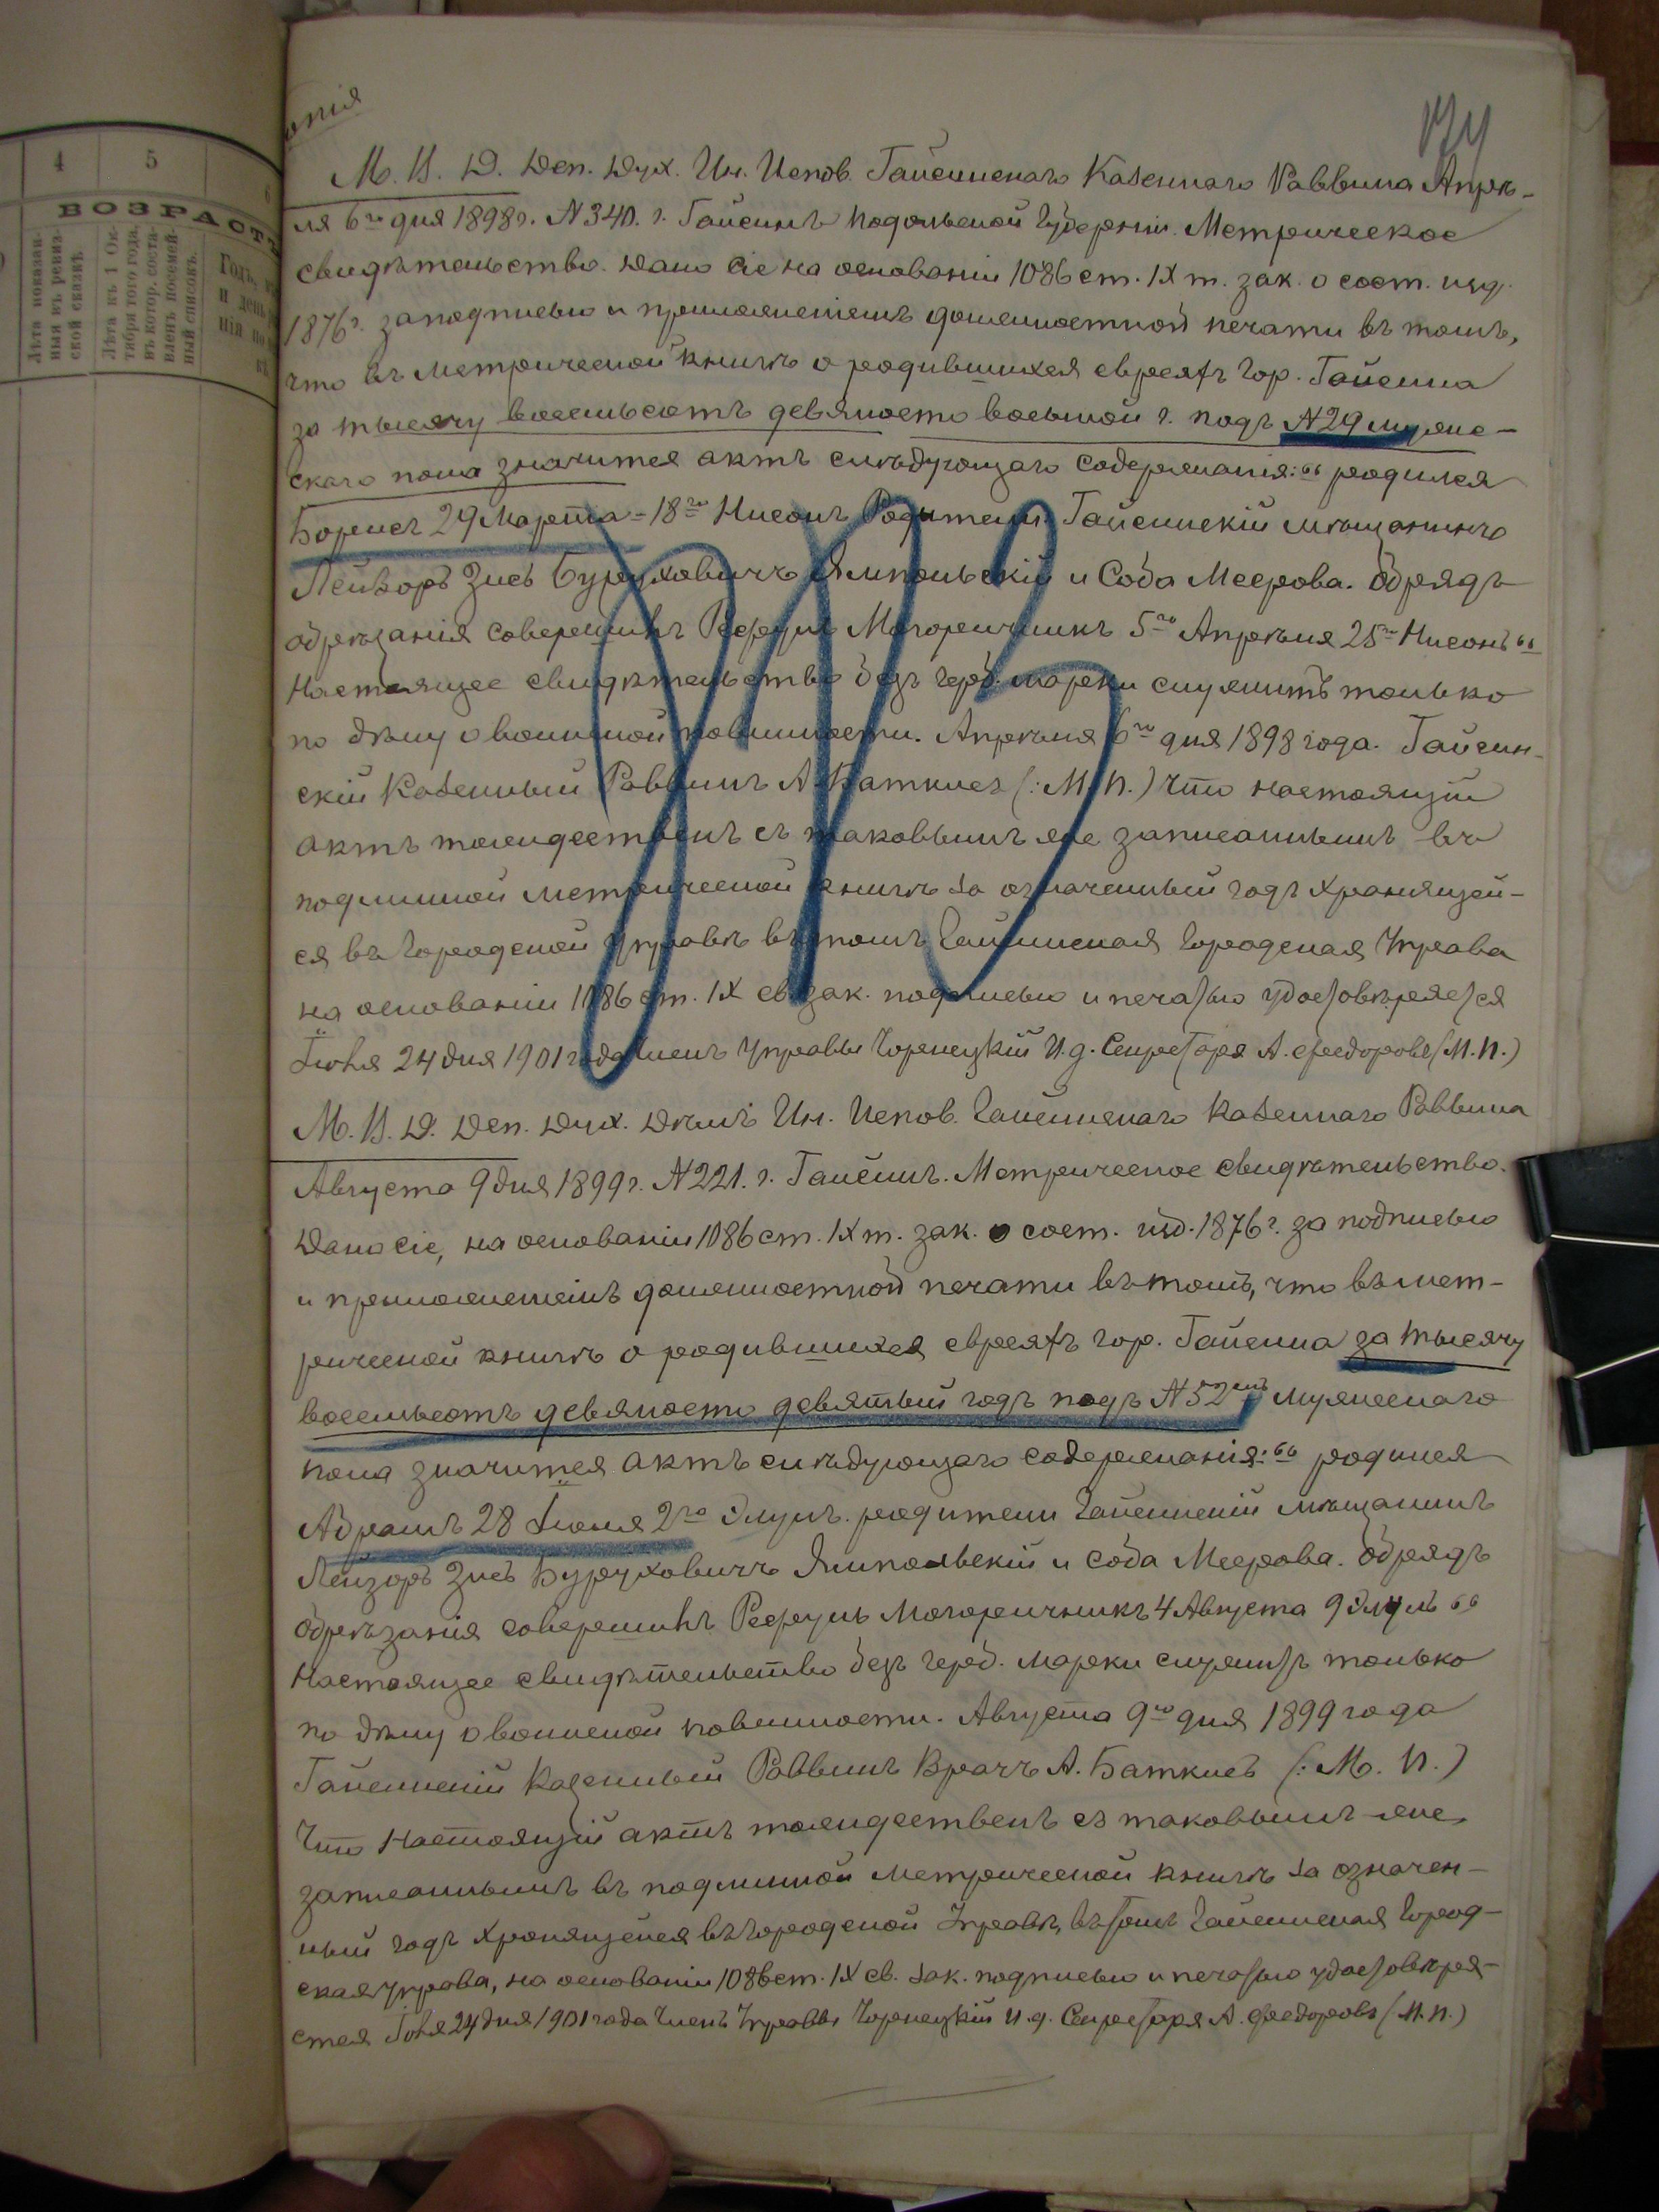 174
4 5 6
ВОЗРАСТЪ
Лѣта показан-
ныя въ ревиз-
ской сказкѣ.
Лѣта къ 1 Ок-
тября того года,
въ котор. соста-
вленъ посемей-
ный списокъ.
М. В. Д. Деп. Дух. Ин. Испов. Гайсинскаго Казеннаго Раввина Апрѣ-
ля 6го дня 1898 г. N 340. г. Гайсинъ Подольской Губерніи. Метрическое
свидѣтельство. Дано сіе на основаніи 1086 ст. IX т. зак. о сост. изд.
1876 г. за подписью и приложеніемъ должностной печати въ томъ,
что въ метрической книгѣ о родившихся евреяхъ гор. Гайсина
за тысячу восемьсотъ девяносто восьмой г. подъ N 29 муже-
скаго пола значится актъ слѣдующаго содержанія: „ родился
Борисъ 29 Марта - 18го Нисонъ Родители: Гайсинскій мѣщанинъ
Лейзоръ Зисъ Буруховичъ Ямпольскій и Соба Меерова. Обрядъ
обрѣзанія совершилъ Рефулъ Могоричникъ 5го Апрѣля 25го Нисонъ “
Настоящее свидѣтельство безъ герб. марки служитъ только
по дѣлу о воинской повинности. Апрѣля 6го дня 1898 года. Гайсин-
скій Казенный Раввинъ А. Баткисъ (: М. П.) Что настоящій
актъ тождественъ съ таковымъ же записаннымъ въ
подлинной метрической книгѣ за означенный годъ хранящей-
ся въ Городской Управѣ въ томъ Гайсинская Городская Управа
на основаніи 1086 ст. IX св. зак. подписью и печатью удостовѣряется
Іюля 24 дня 1901 года Членъ Управы И. д. Секретаря А. Федоровъ (М. П.)
М. В. Д. Деп. Дух. Дѣлъ Ин. Испов. Гайсинскаго Казеннаго Раввина
Августа 9 дня 1899 г. N 221. г. Гайсинъ. Метрическое свидѣтельство.
Дано сіе, на основаніи 1086 ст. IX т. зак. о сост. изд. 1876 г. за подписью
и приложеніемъ должностной печати въ томъ, что въ мет-
рической книгѣ о родившихся евреяхъ гор. Гайсина за тысячу
восемьсотъ девяносто девятый годъ подъ N 52 мужескаго
пола значится актъ слѣдующаго содержанія: „ родился
Абрамъ 28 Іюля 2го Элулъ. родители Гайсинскій мѣщанинъ
Лейзоръ Зисъ Буруховичъ Ямпольскій и Соба Меерова. Обрядъ
обрѣзанія совершилъ Рефулъ Могоричникъ 4 Августа 9 Элулъ “
Настоящее свидѣтельство безъ герб. марки служитъ только
по дѣлу о воинской повинности. Августа 9го дня 1899 года
Гайсинскій Казенный Раввинъ Врачъ А. Баткисъ (: М. П.)
Что настоящій актъ тождественъ съ таковымъ же
записаннымъ въ подлинной метрической книгѣ за означен-
ный годъ хранящейся въ Городской Управѣ, въ томъ Гайсинская Город-
ская Управа, на основаніи 1086 ст. IX св. зак. подписью и печатью удостовѣря-
ется Іюля 24 дня 1901 года Членъ Управы И. д. Секретаря А. Федоровъ (М. П.)